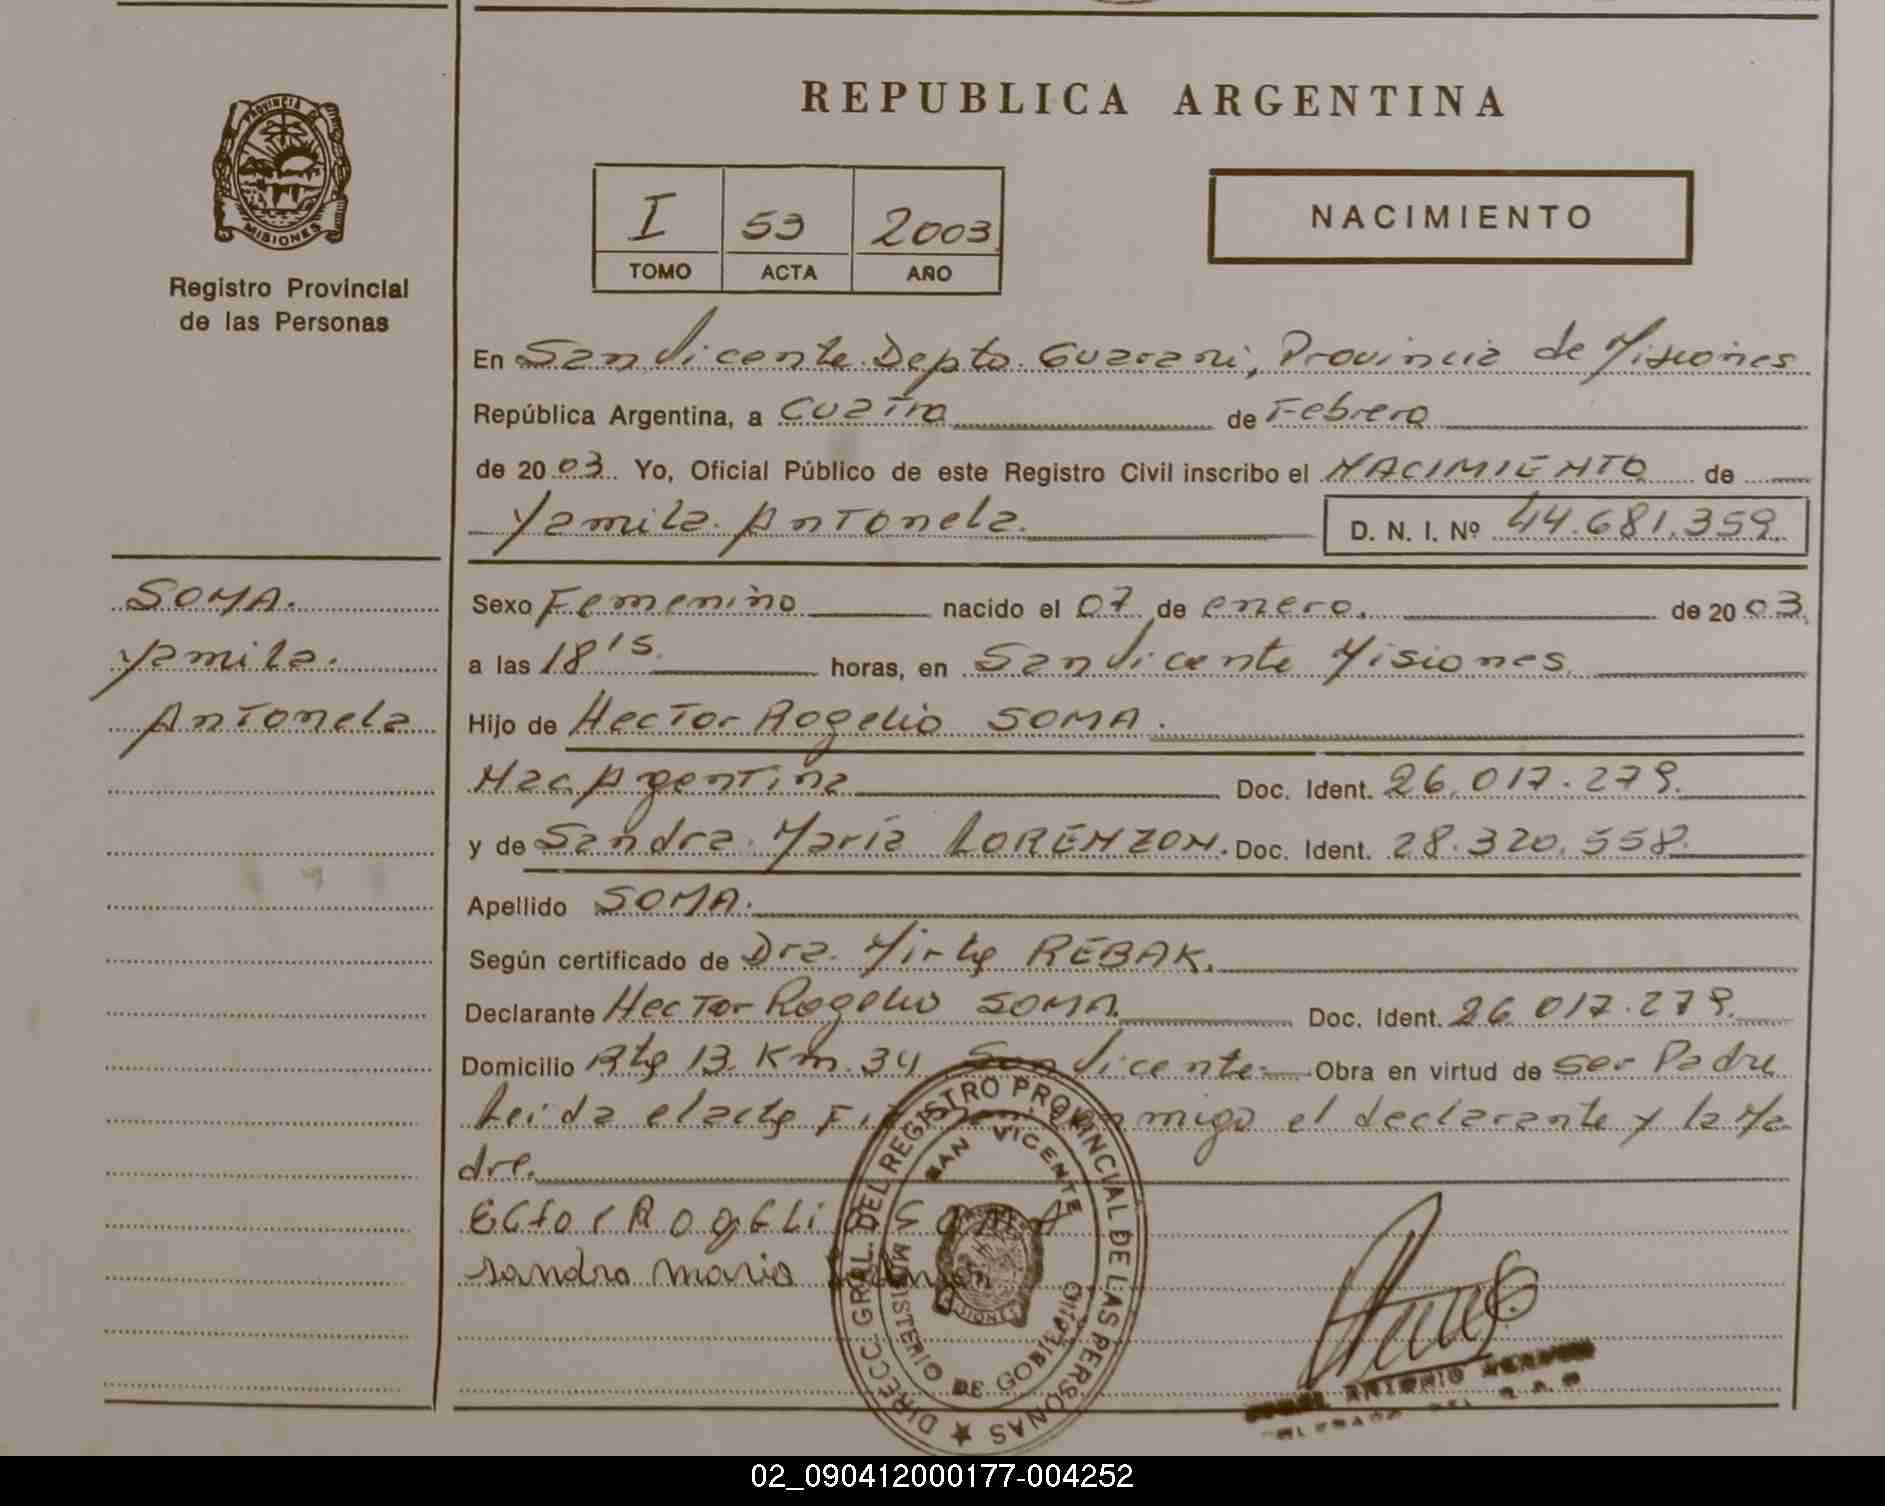 REPUBLICA ARGENTINA
PROVINCIA DE
MISIONES
Registro Provincial
de las Personas
I 53 2003
TOMO ACTA AÑO
NACIMIENTO
En San Vicente Depto. Guarani, Provincia de Misiones
República Argentina, a Cuatro de Febrero
de 2003. Yo, Oficial Público de este Registro Civil inscribo el NACIMIENTO de
Yamila Antonela. D. N. I. Nº 44.681.359.
SOMA.
Yamila.
Antonela
Sexo Femenino nacido el 07 de enero. de 2003.
a las 18 15. horas, en San Vicente Misiones.
Hijo de Hector Rogelio SOMA.
Nac Argentina Doc. Ident. 26.017.279.
y de Sandra María LORENZON. Doc. Ident. 28.320.558.
Apellido SOMA.
Según certificado de Dra. Mirta REBAK.
Declarante Hector Rogelio SOMA. Doc. Ident. 26.017.279.
Domicilio Rta 13 Km. 34 San Vicente. Obra en virtud de ser Padre
Leida el acta conmigo el declarante y la Ma
dre.
EctorRogeli
sandra maria
DIRECC. GRAL. DEL REGISTRO PROVINCIAL DE LAS PERSONAS
SAN VICENTE
MINISTERIO DE GOBIERNO
ANTONIO
02_090412000177-004252